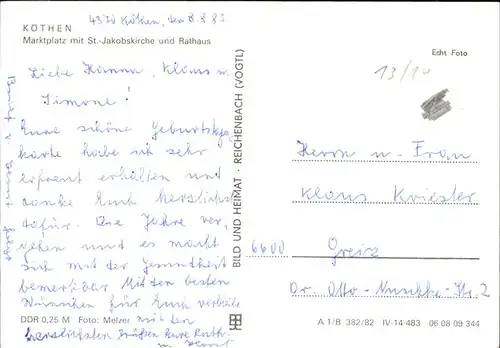 4370 Köthen, den 8.8.83
KÖTHEN
Marktplatz mit St.-Jakobskirche und Rathaus
Liebe Hanna, Klaus u.
Simone!
Eure schöne Geburtstags
karte habe ich sehr
erfreut erhalten und
danke Euch herzlichst
dafür. Die Jahre ver
gehen und es macht
sich mit der Gesundheit
bemerkbar. Mit den besten
Wünschen für Euch verbleibe
DDR 0,25 M Foto: Melzer mit den
herzlichsten Grüßen Eure Ruth
u.
Brief
folgt
BILD UND HEIMAT · REICHENBACH (VOGTL)
Echt Foto
13/14
Herrn u. Frau
Klaus
6600 Greiz
Dr. Otto-Nuschke-Str. 2
A 1/B 382/82 IV-14-483 06 08 09 344